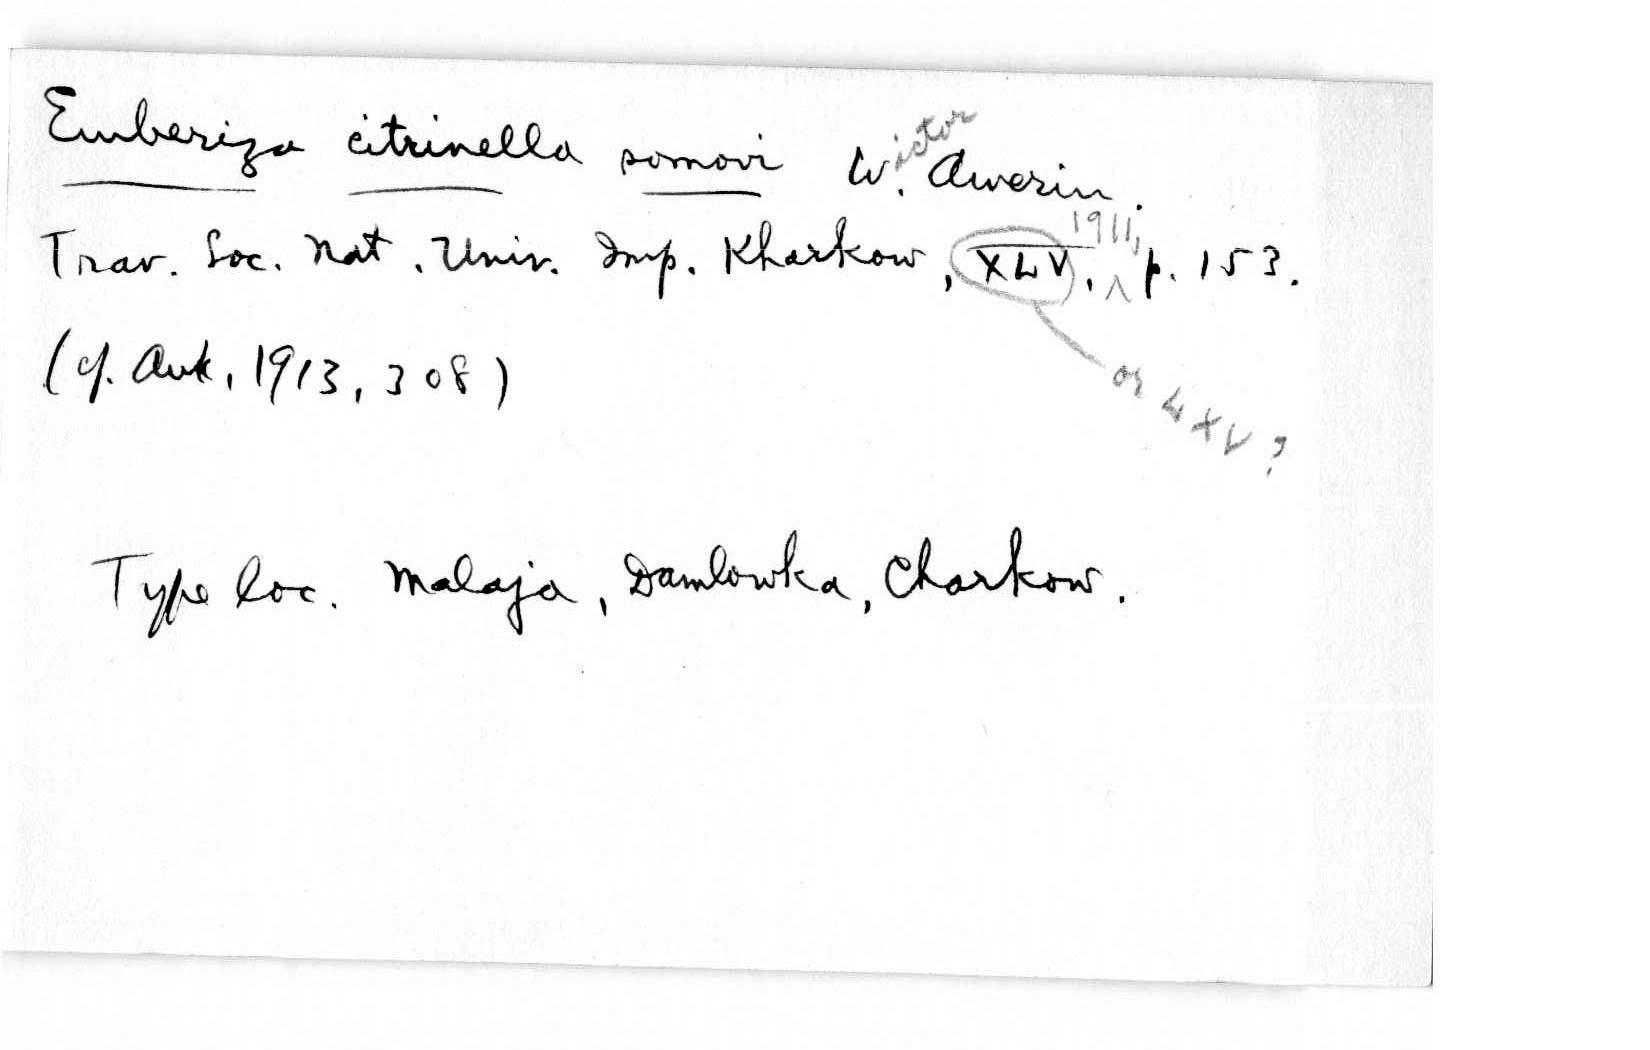 Emberiza citrinella somovi W.ictor Awerin.
Trav. Soc. Nat. Univ. Imp. Kharkow, XLV, 1911, p. 153.
or LXV?
(cf. Auk, 1913, 308)
Type loc. Malaja, Damlowka, Charkow.